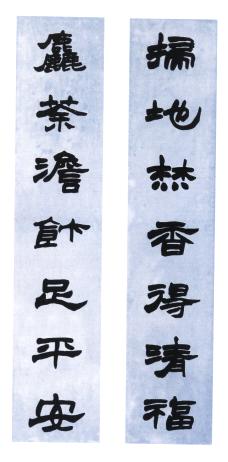 掃地焚香得清福
麤茶澹飰足平安